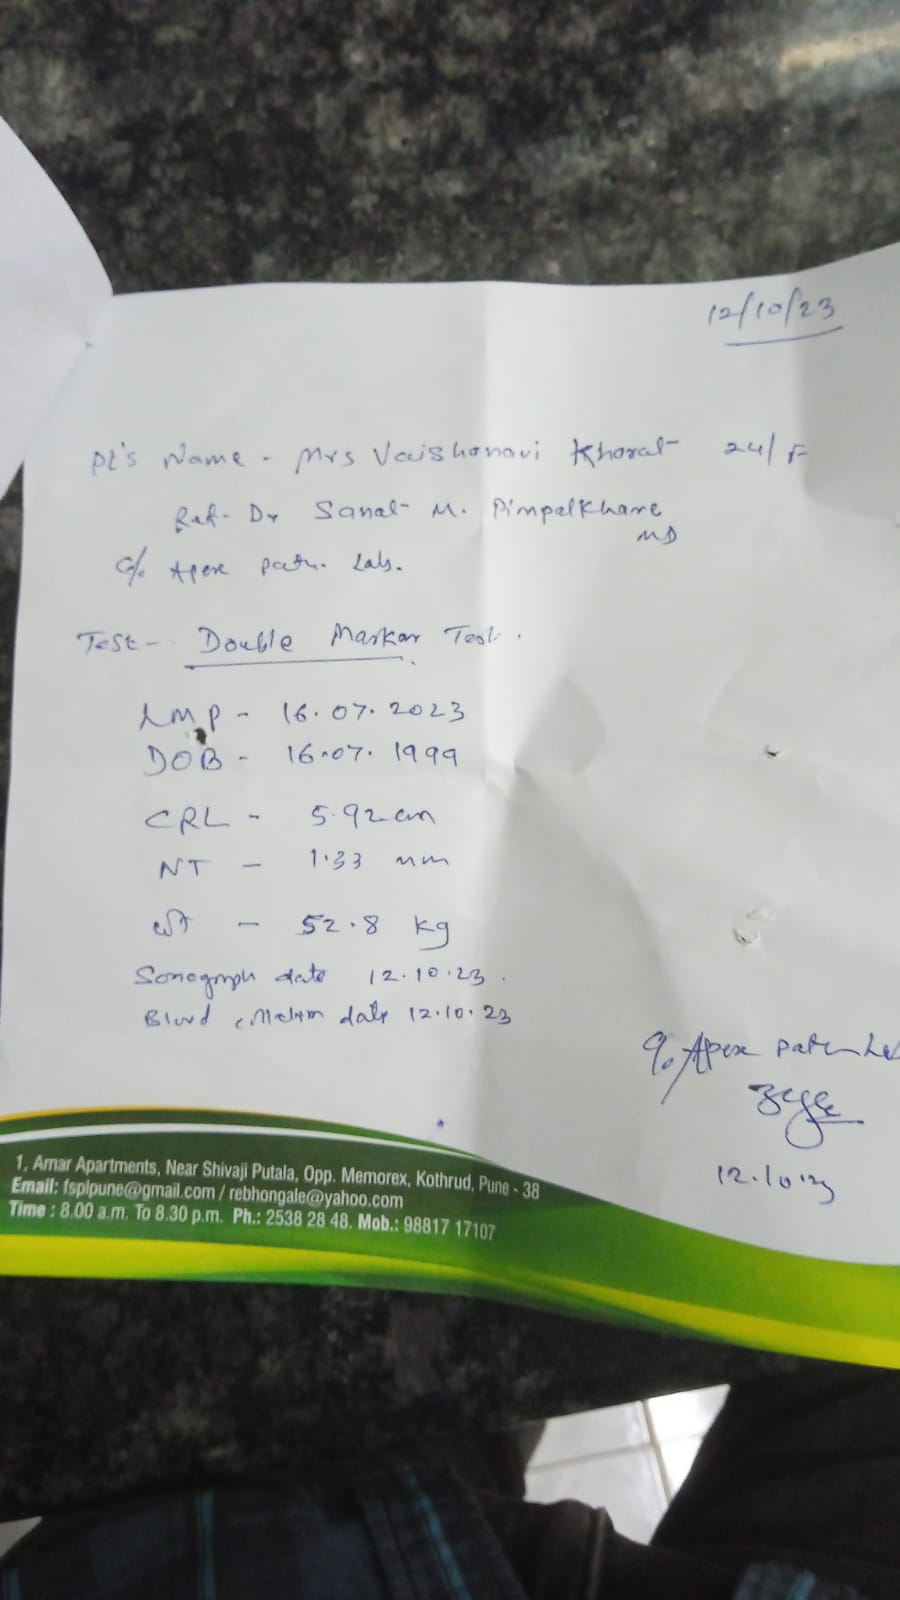 12/10/23
Pt's Name - Mrs Vaishanavi Khorat 24/F
Ref- Dr Sanat M. Pimpalkhare
MD
C/o Apex Path. Lab.
Test - Double Markar Test.
LMP - 16.07.2023
DOB - 16.07.1999
CRL - 5.92 cm
NT - 1.33 mm
wt - 52.8 kg
Sonograph date 12.10.23.
Blood collection date 12.10.23
C/o Apex Path
12.10.23
1, Amar Apartments, Near Shivaji Putala, Opp. Memorex, Kothrud, Pune - 38
Email: fsplpune@gmail.com / rebhongale@yahoo.com
Time : 8.00 a.m. To 8.30 p.m. Ph.: 2538 28 48. Mob.: 98817 17107